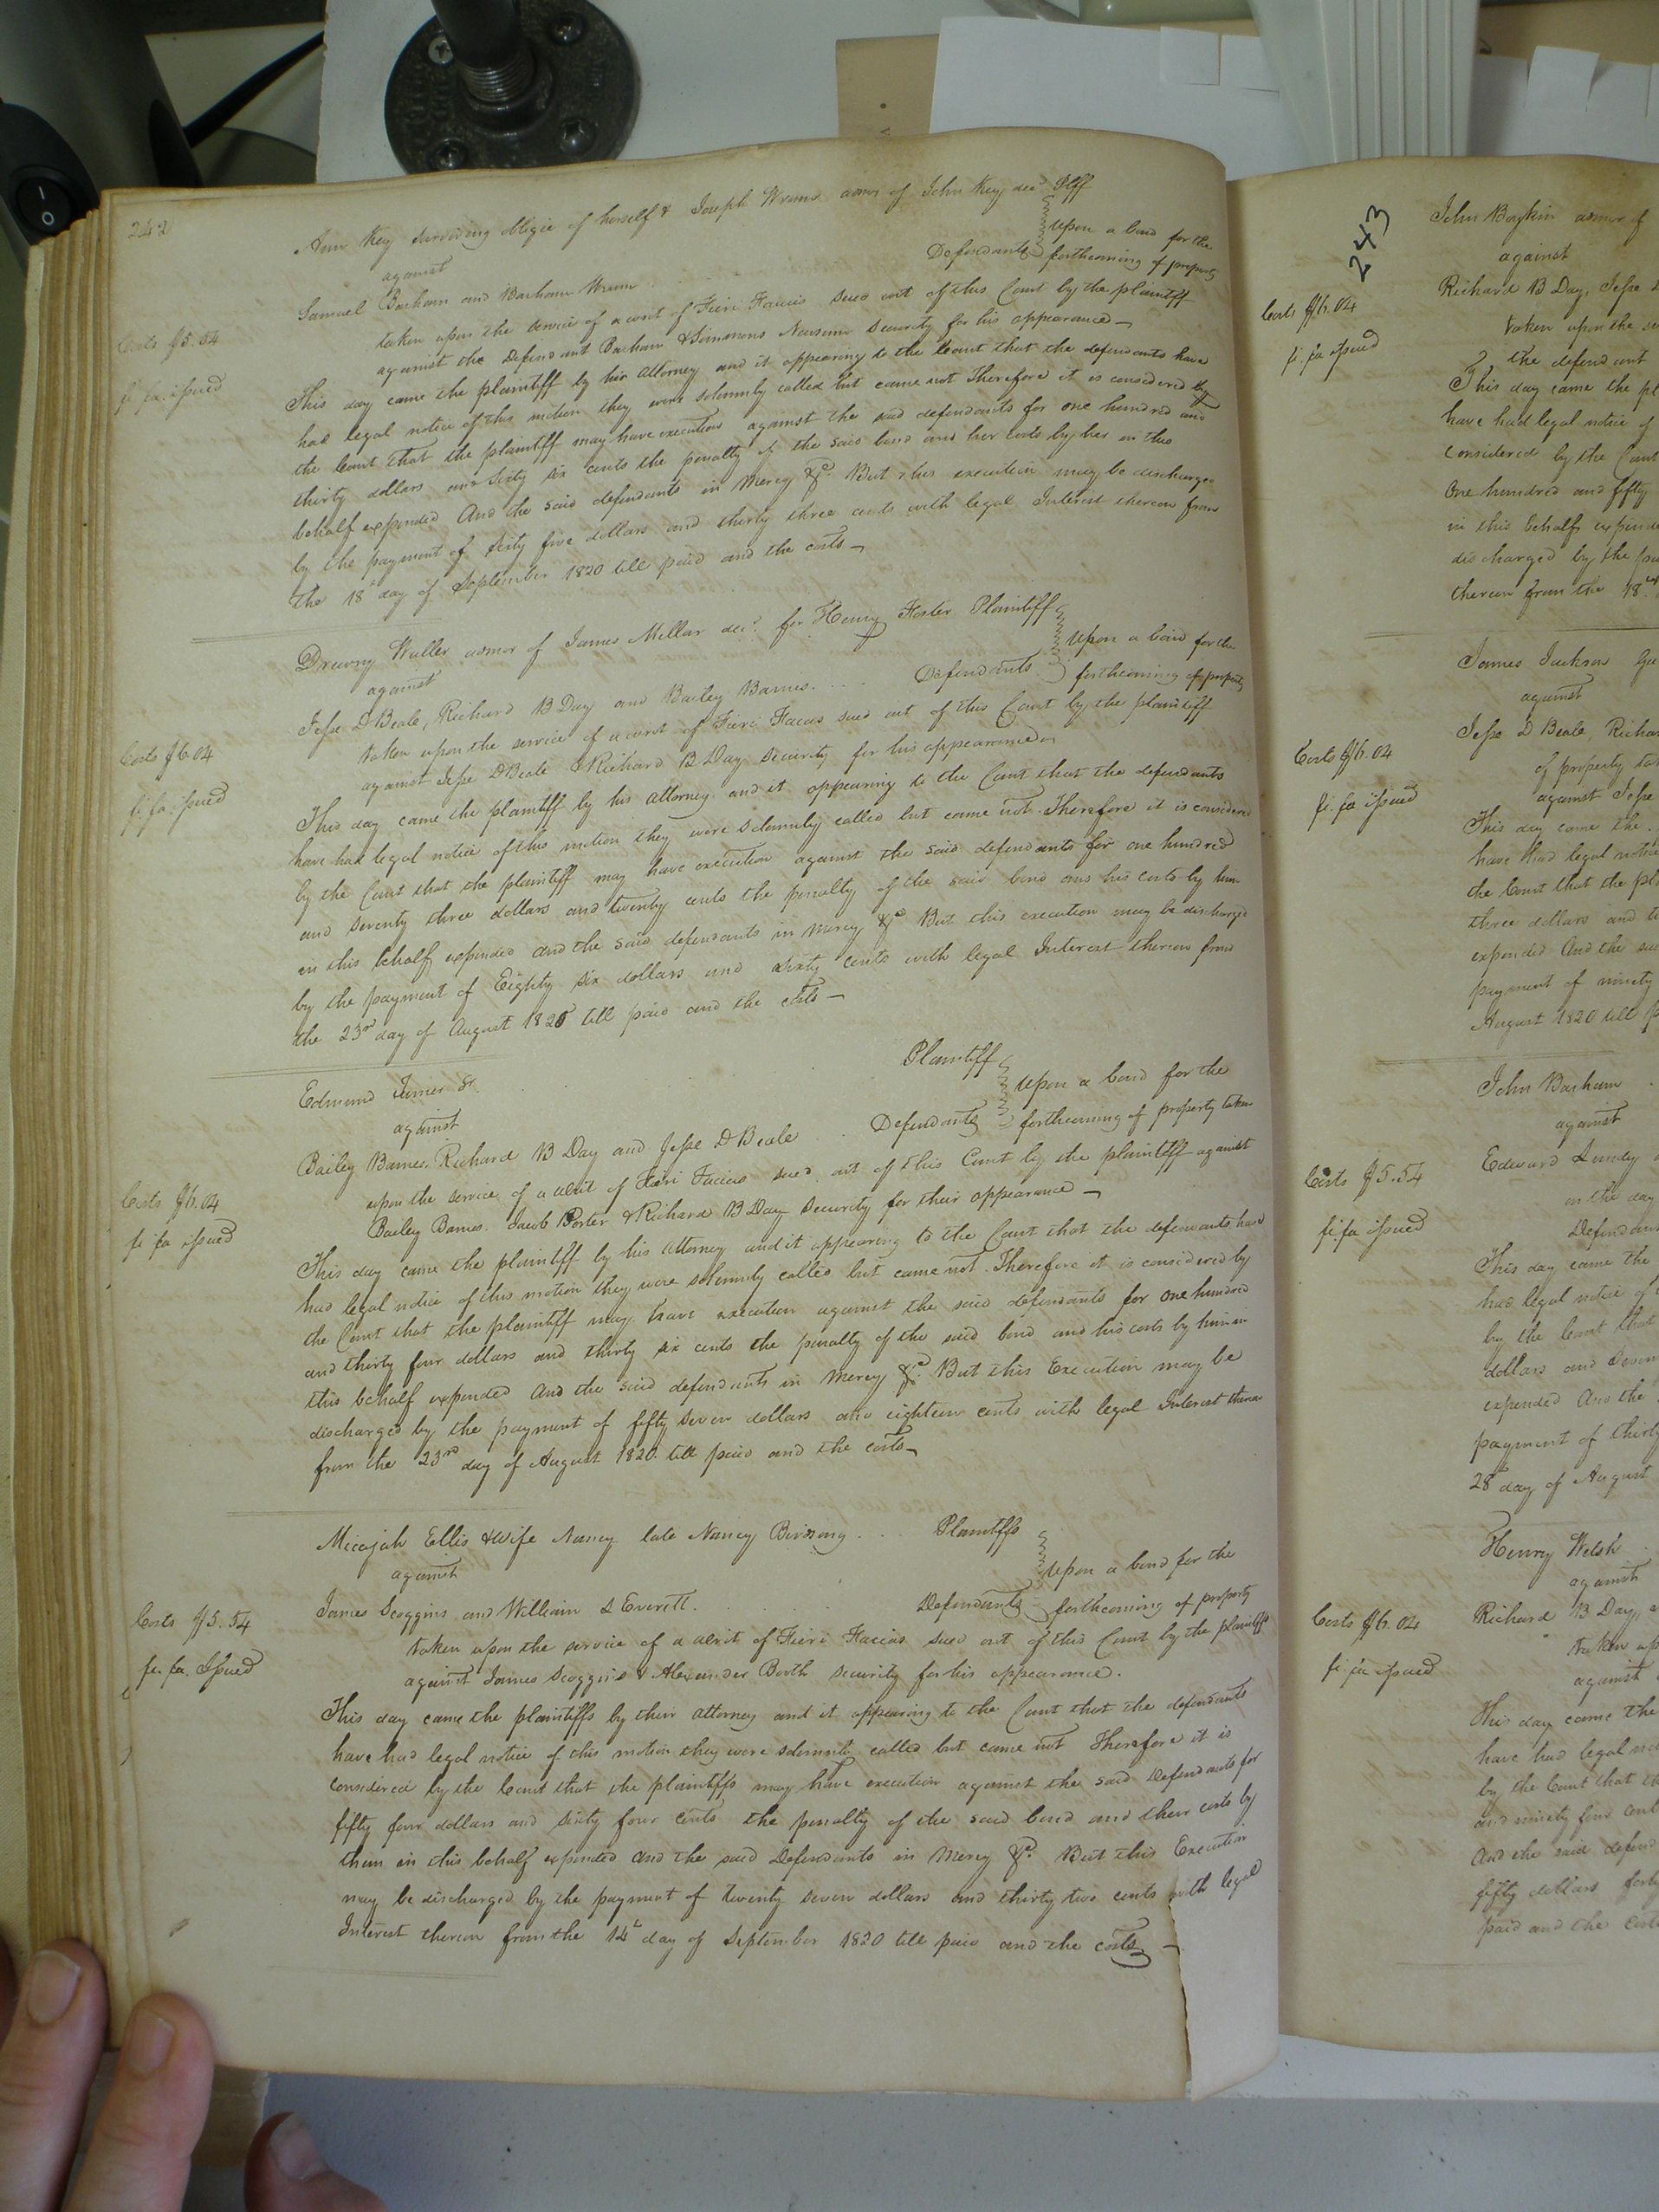 242
Ann Key surviving obligee of herself & Joseph Wrenn admr of John Key decd Plff
against
Upon a bond for the
Samuel Barham and Barham Wrenn Defendants forthcoming of property
taken upon the service of a writ of Fieri Facias sued out of this Court by the plaintiff
against the Defendant Barham & Simmons Newsom security for his appearance —
Costs $5.54
fi. fa. issued
This day came the plaintiff by her attorney and it appearing to the Court that the defendants have
had legal notice of this motion they were solemnly called but came not Therefore it is considered by
the Court that the plaintiff may have execution against the said defendants for one hundred and
thirty dollars and sixty six cents the penalty of the said bond and her costs by her in this
behalf expended And the said defendants in Mercy &c. But this execution may be discharged
by the payment of sixty five dollars and thirty three cents with legal Interest thereon from
the 18th day of September 1820 till paid and the costs —
Drewry Waller admor of James Millar decd. for Henry Foster Plaintiff
against
Upon a bond for the
Jesse D Beale, Richard B Day and Bailey Barnes. . . . . Defendants forthcoming of property
taken upon the service of a writ of Fieri Facias sued out of this Court by the plaintiff
against Jesse D Beale & Richard B Day security for his appearance
Costs $6.04
fi. fa. issued
This day came the plaintiff by his attorney and it appearing to the Court that the defendants
have had legal notice of this motion they were solemnly called but came not. Therefore it is considered
by the Court that the plaintiff may have execution against the said defendants for one hundred
and seventy three dollars and twenty cents the penalty of the said bond and his costs by him
in this behalf expended and the said defendants in Mercy &c. But this execution may be discharged
by the payment of Eighty six dollars and sixty cents with legal Interest thereon from
the 23rd day of August 1820 till paid and the costs —
Edmund Turner Sr. Plaintiff
against
Upon a bond for the
Bailey Barnes, Richard B Day and Jesse D Beale Defendants forthcoming of property taken
upon the service of a writ of Fieri Facias sued out of this Court by the plaintiff against
Bailey Barnes. Jacob Porter & Richard B Day security for their appearance —
Costs $6.04
fi fa issued
This day came the plaintiff by his attorney and it appearing to the Court that the defendants have
had legal notice of this motion they were solemnly called but came not. Therefore it is considered by
the Court that the plaintiff may have execution against the said defendants for one hundred
and thirty four dollars and thirty six cents the penalty of the said bond and his costs by him in
this behalf expended And the said defendants in Mercy &c. But this Execution may be
discharged by the payment of fifty seven dollars and eighteen cents with legal Interest thereon
from the 23rd day of August 1820 till paid and the costs —
Micajah Ellis & wife Nancy late Nancy Birdsong . . . Plaintiffs
against
Upon a bond for the
James Scoggins and William D Everett. Defendants forthcoming of property
taken upon the service of a writ of Fieri Facias sued out of this Court by the plaintiffs
against James Scoggins & Alexander Booth security for his appearance.
Costs $5.54
fi. fa. Issued
This day came the plaintiffs by their attorney and it appearing to the Court that the defendants
have had legal notice of this motion they were solemnly called but came not Therefore it is
considered by the Court that the plaintiffs may have execution against the said Defendants for
fifty four dollars and sixty four cents the penalty of the said bond and their costs by
them in this behalf expended and the said Defendants in Mercy &c. But this Execution
may be discharged by the payment of twenty seven dollars and thirty two cents with legal
Interest thereon from the 14th day of September 1820 till paid and the costs —
243
John Boykin admor of
against
Richard B Day, Jesse D
taken upon the se
the defendant
Costs $6.04
fi. fa issued
This day came the pl
have had legal notice of
considered by the Court
one hundred and fifty
in this behalf expende
discharged by the pa
thereon from the 18th
James Jackson Gu
against
Jesse D Beale, Richar
of property tak
against Jesse
Costs $6.04
fi. fa issued
This day came the
have had legal notice
the Court that the pl
three dollars and t
expended And the sai
payment of ninety
August 1820 till p
John Barham
against
Edward Lundy
on the day
Defendan
Costs $5.54
fi. fa issued
This day came the
had legal notice of t
by the Court that
dollars and seven
expended And the
payment of thirty
28th day of August
Henry Welsh
against
Richard B Day, a
taken up
against
Costs $6.04
fi. fa issued
This day came the
have had legal no
by the Court that th
and ninety four cent
And the said defen
fifty dollars forty
paid and the costs